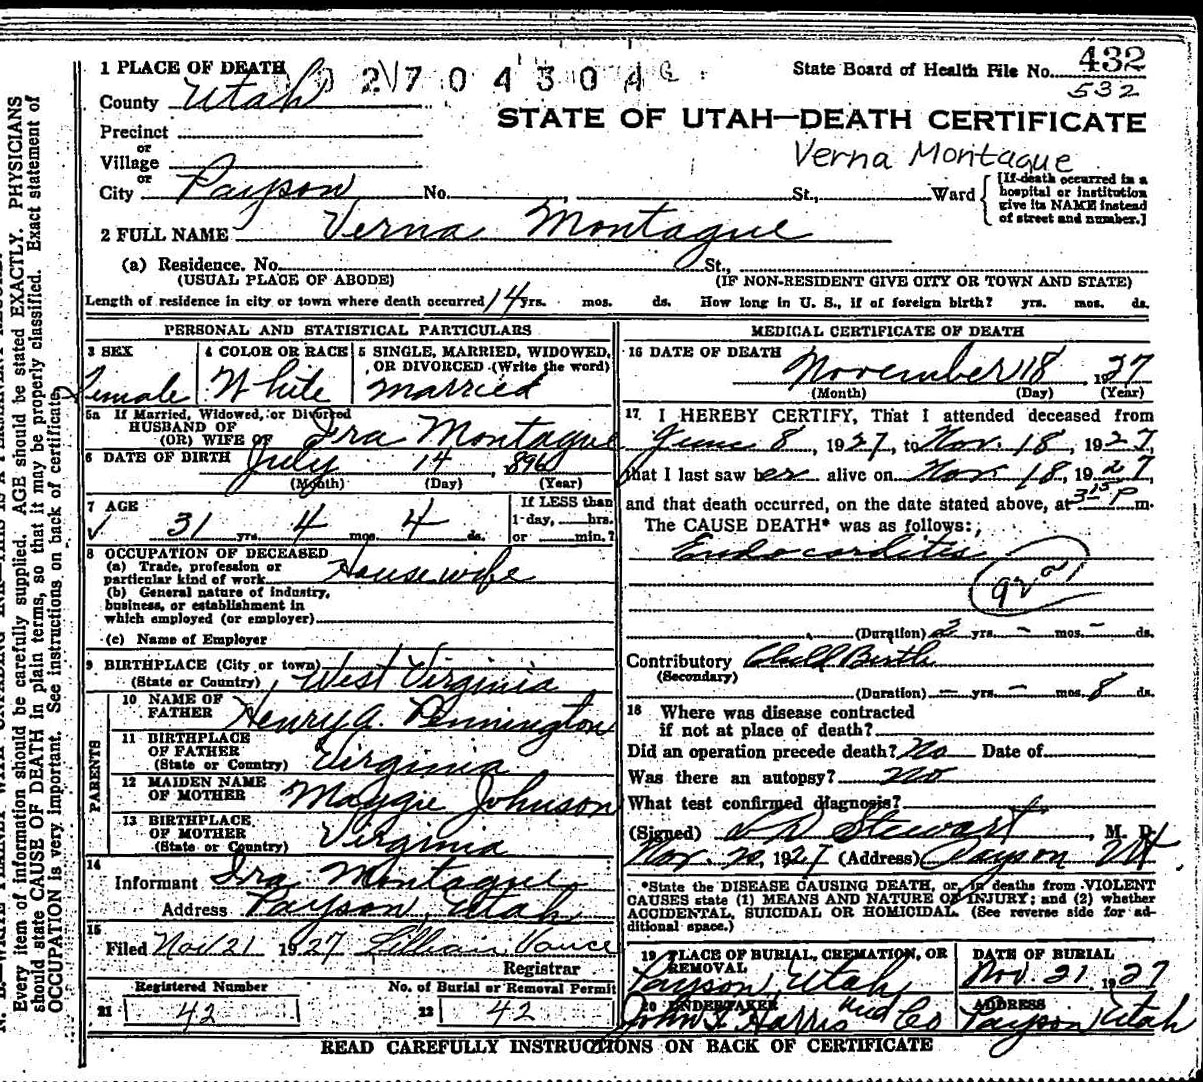 1 PLACE OF DEATH
02704304
State Board of Health File No. 432
532
County Utah
STATE OF UTAH—DEATH CERTIFICATE
Precinct
or
Village
Verna Montague
or
City Payson No. , St., Ward
[If death occurred in a hospital or institution give its NAME instead of street and number.]
2 FULL NAME Verna Montague
(a) Residence. No. St.,
(USUAL PLACE OF ABODE) (IF NON-RESIDENT GIVE CITY OR TOWN AND STATE)
Length of residence in city or town where death occurred 14 yrs. mos. ds. How long in U. S., if of foreign birth? yrs. mos. ds.
PERSONAL AND STATISTICAL PARTICULARS
3 SEX 4 COLOR OR RACE 5 SINGLE, MARRIED, WIDOWED,
OR DIVORCED (Write the word)
Female White Married
5a If Married, Widowed, or Divorced
HUSBAND OF
(OR) WIFE OF Ira Montague
6 DATE OF BIRTH July 14 1896
(Month) (Day) (Year)
7 AGE
If LESS than
31 yrs. 4 mos. 4 ds.
1 day, hrs.
or min.?
8 OCCUPATION OF DECEASED
(a) Trade, profession or
particular kind of work Housewife
(b) General nature of industry,
business, or establishment in
which employed (or employer)
(c) Name of Employer
9 BIRTHPLACE (City or town)
(State or Country) West Virginia
PARENTS
10 NAME OF
FATHER Henry A. Pennington
11 BIRTHPLACE
OF FATHER
(State or Country) Virginia
12 MAIDEN NAME
OF MOTHER Maggie Johnson
13 BIRTHPLACE
OF MOTHER
(State or Country) Virginia
14
Informant Ira Montague
Address Payson, Utah
15
Filed Nov 21 1927 Lillian Vance
Registrar
Registered Number No. of Burial or Removal Permit
21 42 22 42
MEDICAL CERTIFICATE OF DEATH
16 DATE OF DEATH
November 18, 1927
(Month) (Day) (Year)
17 I HEREBY CERTIFY, That I attended deceased from
June 8, 1927, to Nov. 18, 1927,
that I last saw her alive on Nov. 18, 1927,
and that death occurred, on the date stated above, at 3 15 P m.
The CAUSE DEATH* was as follows:
Endocarditis
92 a
(Duration) 2 yrs. – mos. – ds.
Contributory Child Birth
(Secondary)
(Duration) – yrs. – mos. 8 ds.
18 Where was disease contracted
if not at place of death?
Did an operation precede death? No Date of
Was there an autopsy? No
What test confirmed diagnosis?
(Signed) Stewart, M. D.
Nov. 20, 1927 (Address) Payson Ut.
*State the DISEASE CAUSING DEATH, or, in deaths from VIOLENT
CAUSES state (1) MEANS AND NATURE OF INJURY; and (2) whether
ACCIDENTAL, SUICIDAL OR HOMICIDAL. (See reverse side for ad-
ditional space.)
19 PLACE OF BURIAL, CREMATION, OR
REMOVAL
DATE OF BURIAL
Payson, Utah Nov. 21 1927
20 UNDERTAKER ADDRESS
Harris Co Payson, Utah
READ CAREFULLY INSTRUCTIONS ON BACK OF CERTIFICATE
Every item of information should be carefully supplied. AGE should be stated EXACTLY. PHYSICIANS
should state CAUSE OF DEATH in plain terms, so that it may be properly classified. Exact statement of
OCCUPATION is very important. See instructions on back of certificate.